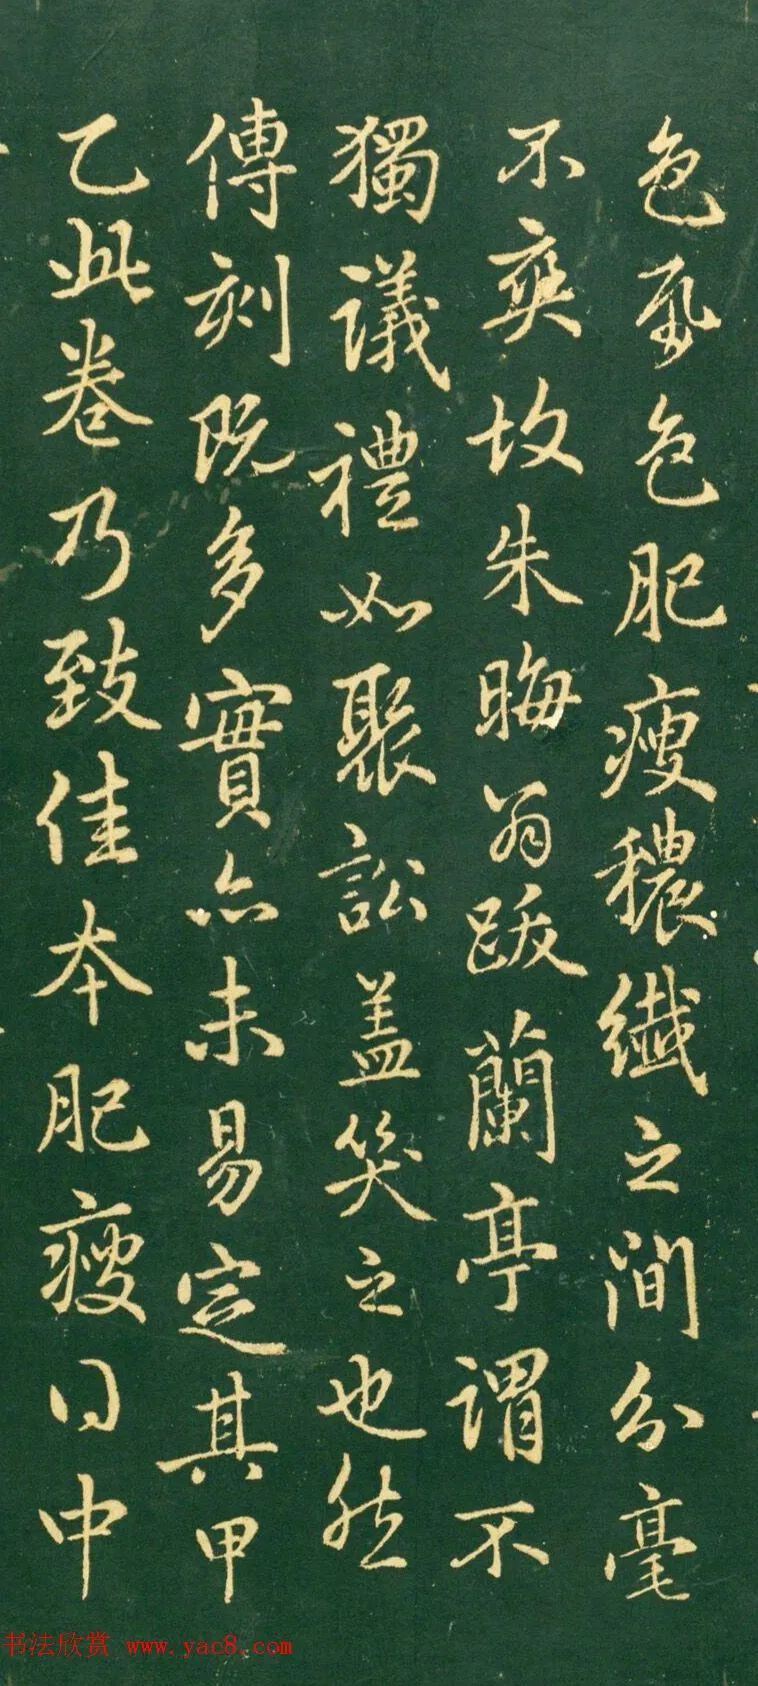 色取色肥瘦穠纖之間分毫
不爽故朱晦翁跋蘭亭謂不
獨議禮如聚訟蓋笑之也然
傳刻既多實亦未易定其甲
乙此卷乃致佳本肥瘦得中
书法欣赏 www.yac8.com